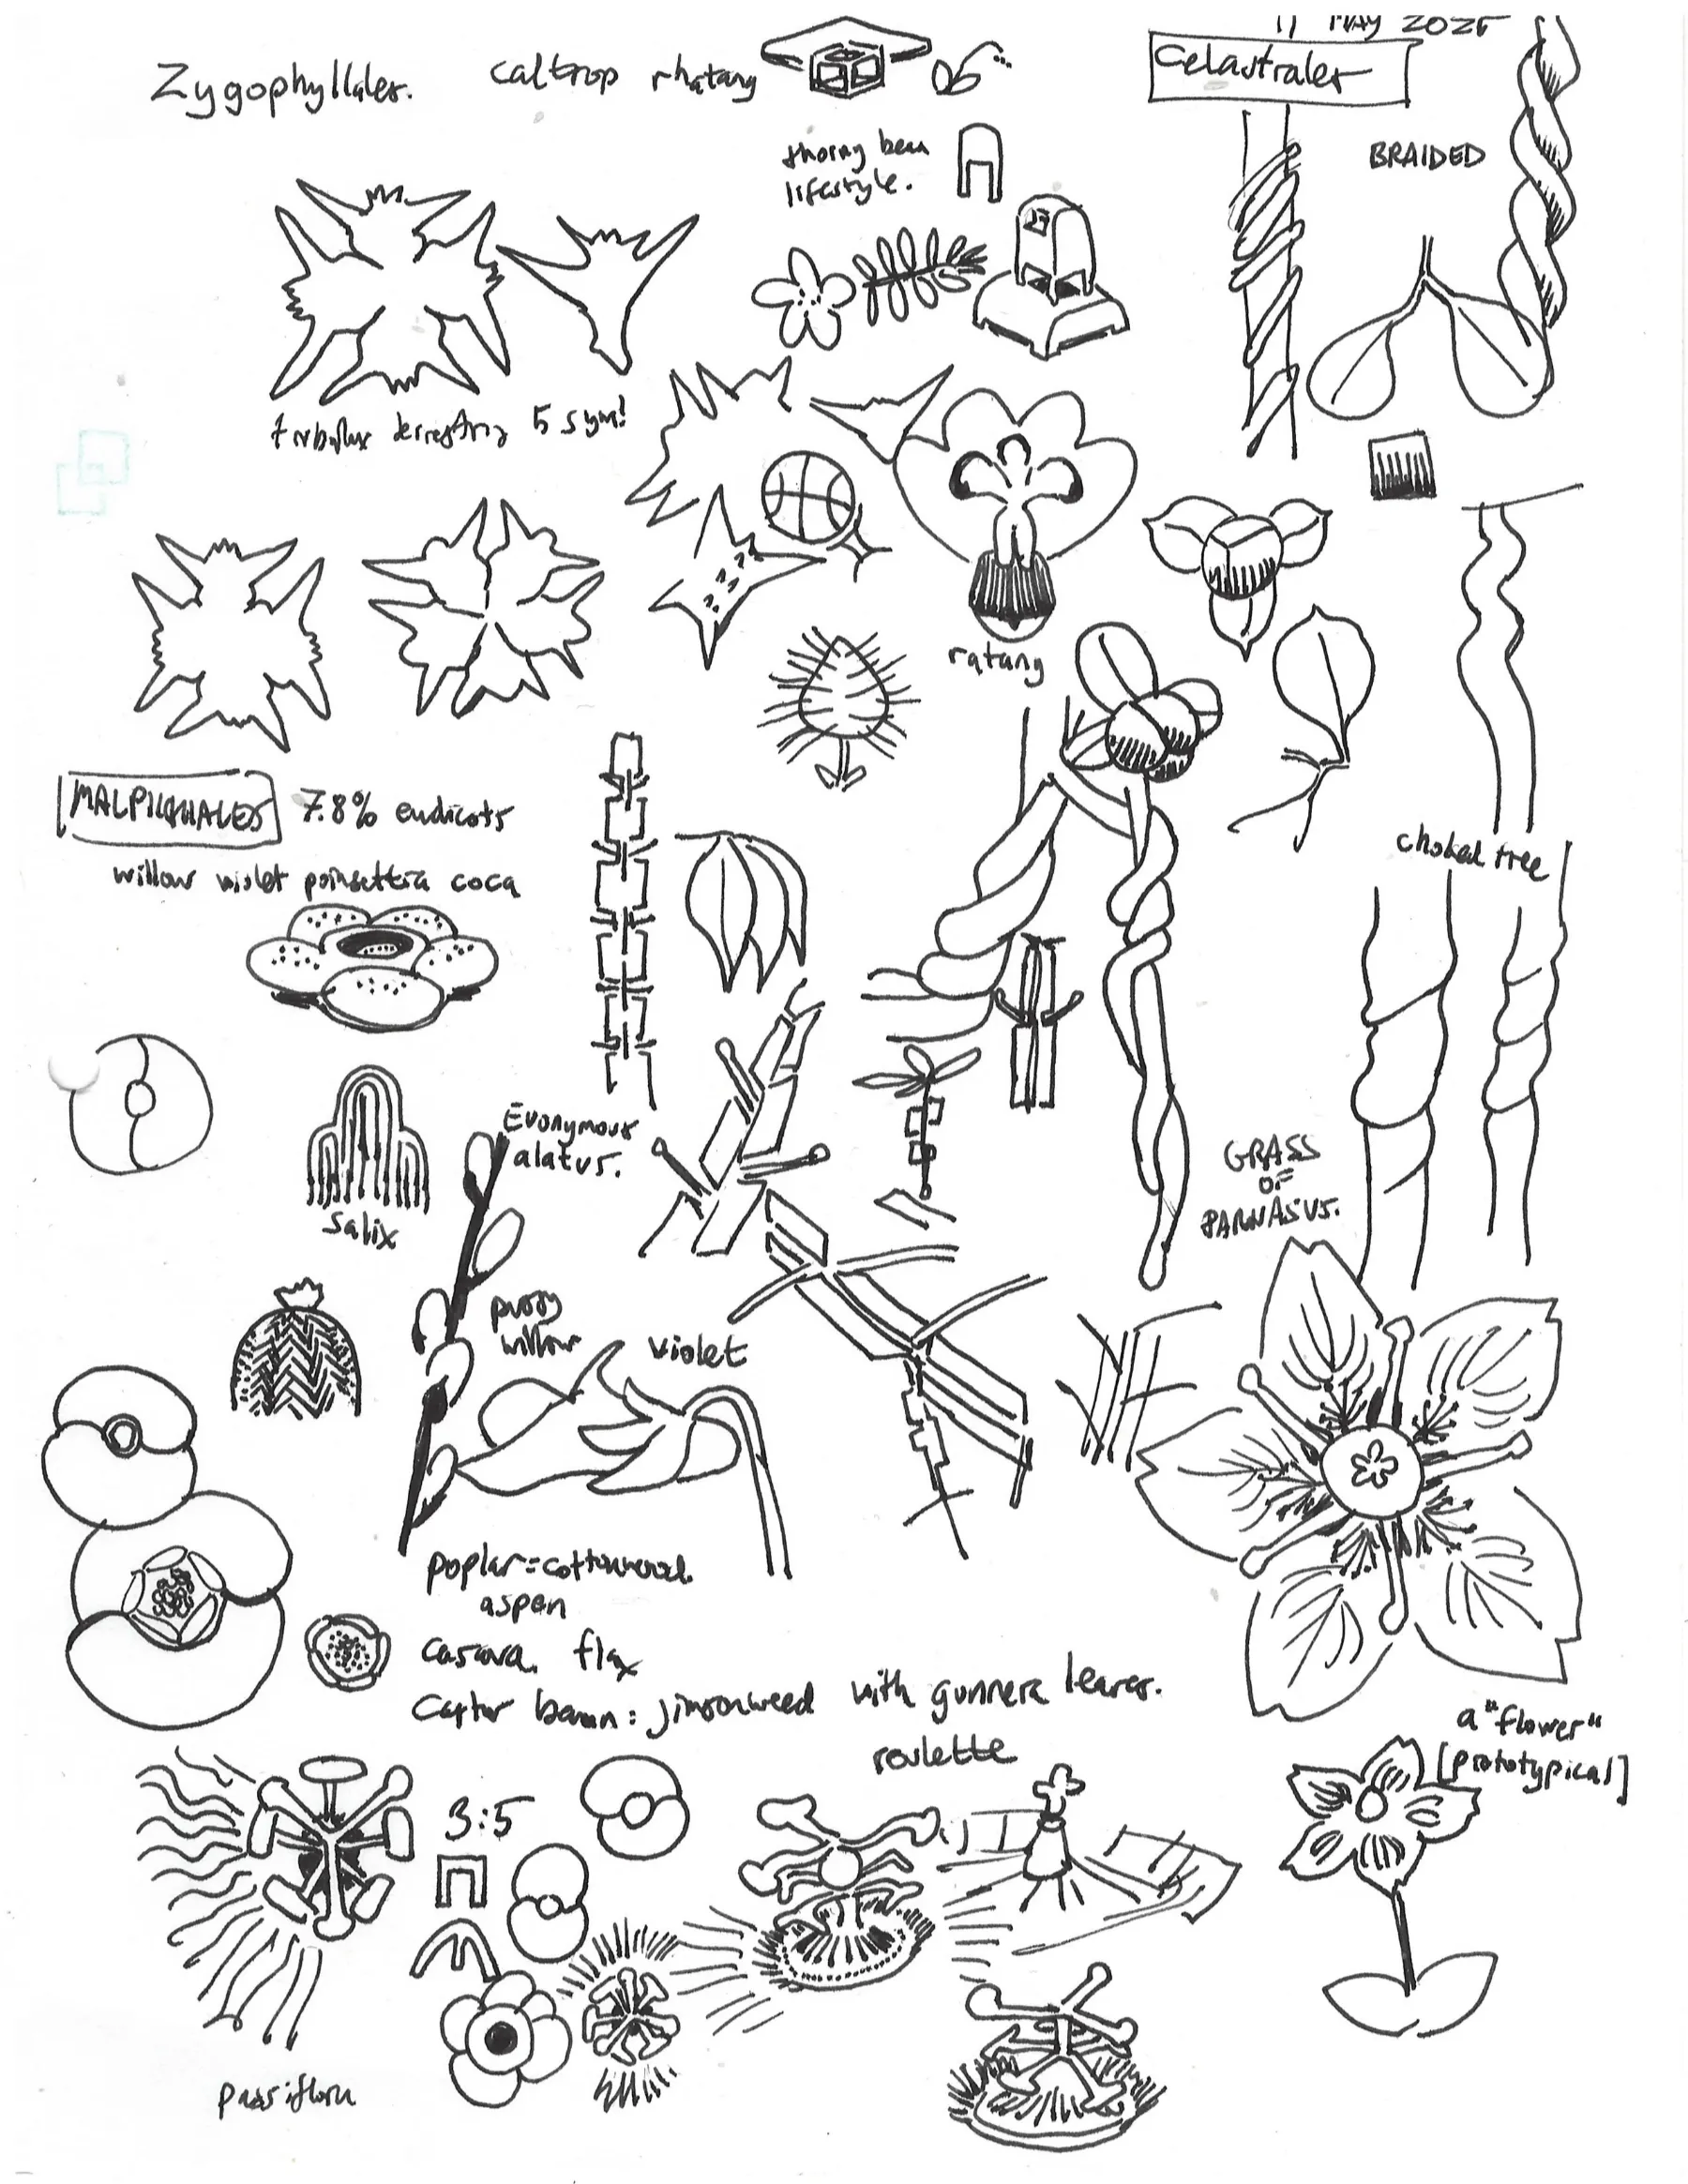 11 MAY 2025
Zygophyllales.
caltrop rhatany
Celastrales
thorny bean
lifestyle.
BRAIDED
27
tribulus terrestris 5 sym!
ratany
MALPIGHIALES 7.8% eudicots
willow violet poinsettia coca
choked tree
Evonymous
alatus.
Salix
GRASS
OF
PARNASUS.
pussy
willow
violet
poplar = cottonwood.
aspen
casava. flax
Castor bean: jimsonweed with gunnera leaves.
roulette
a "flower"
[prototypical]
3:5
passiflora